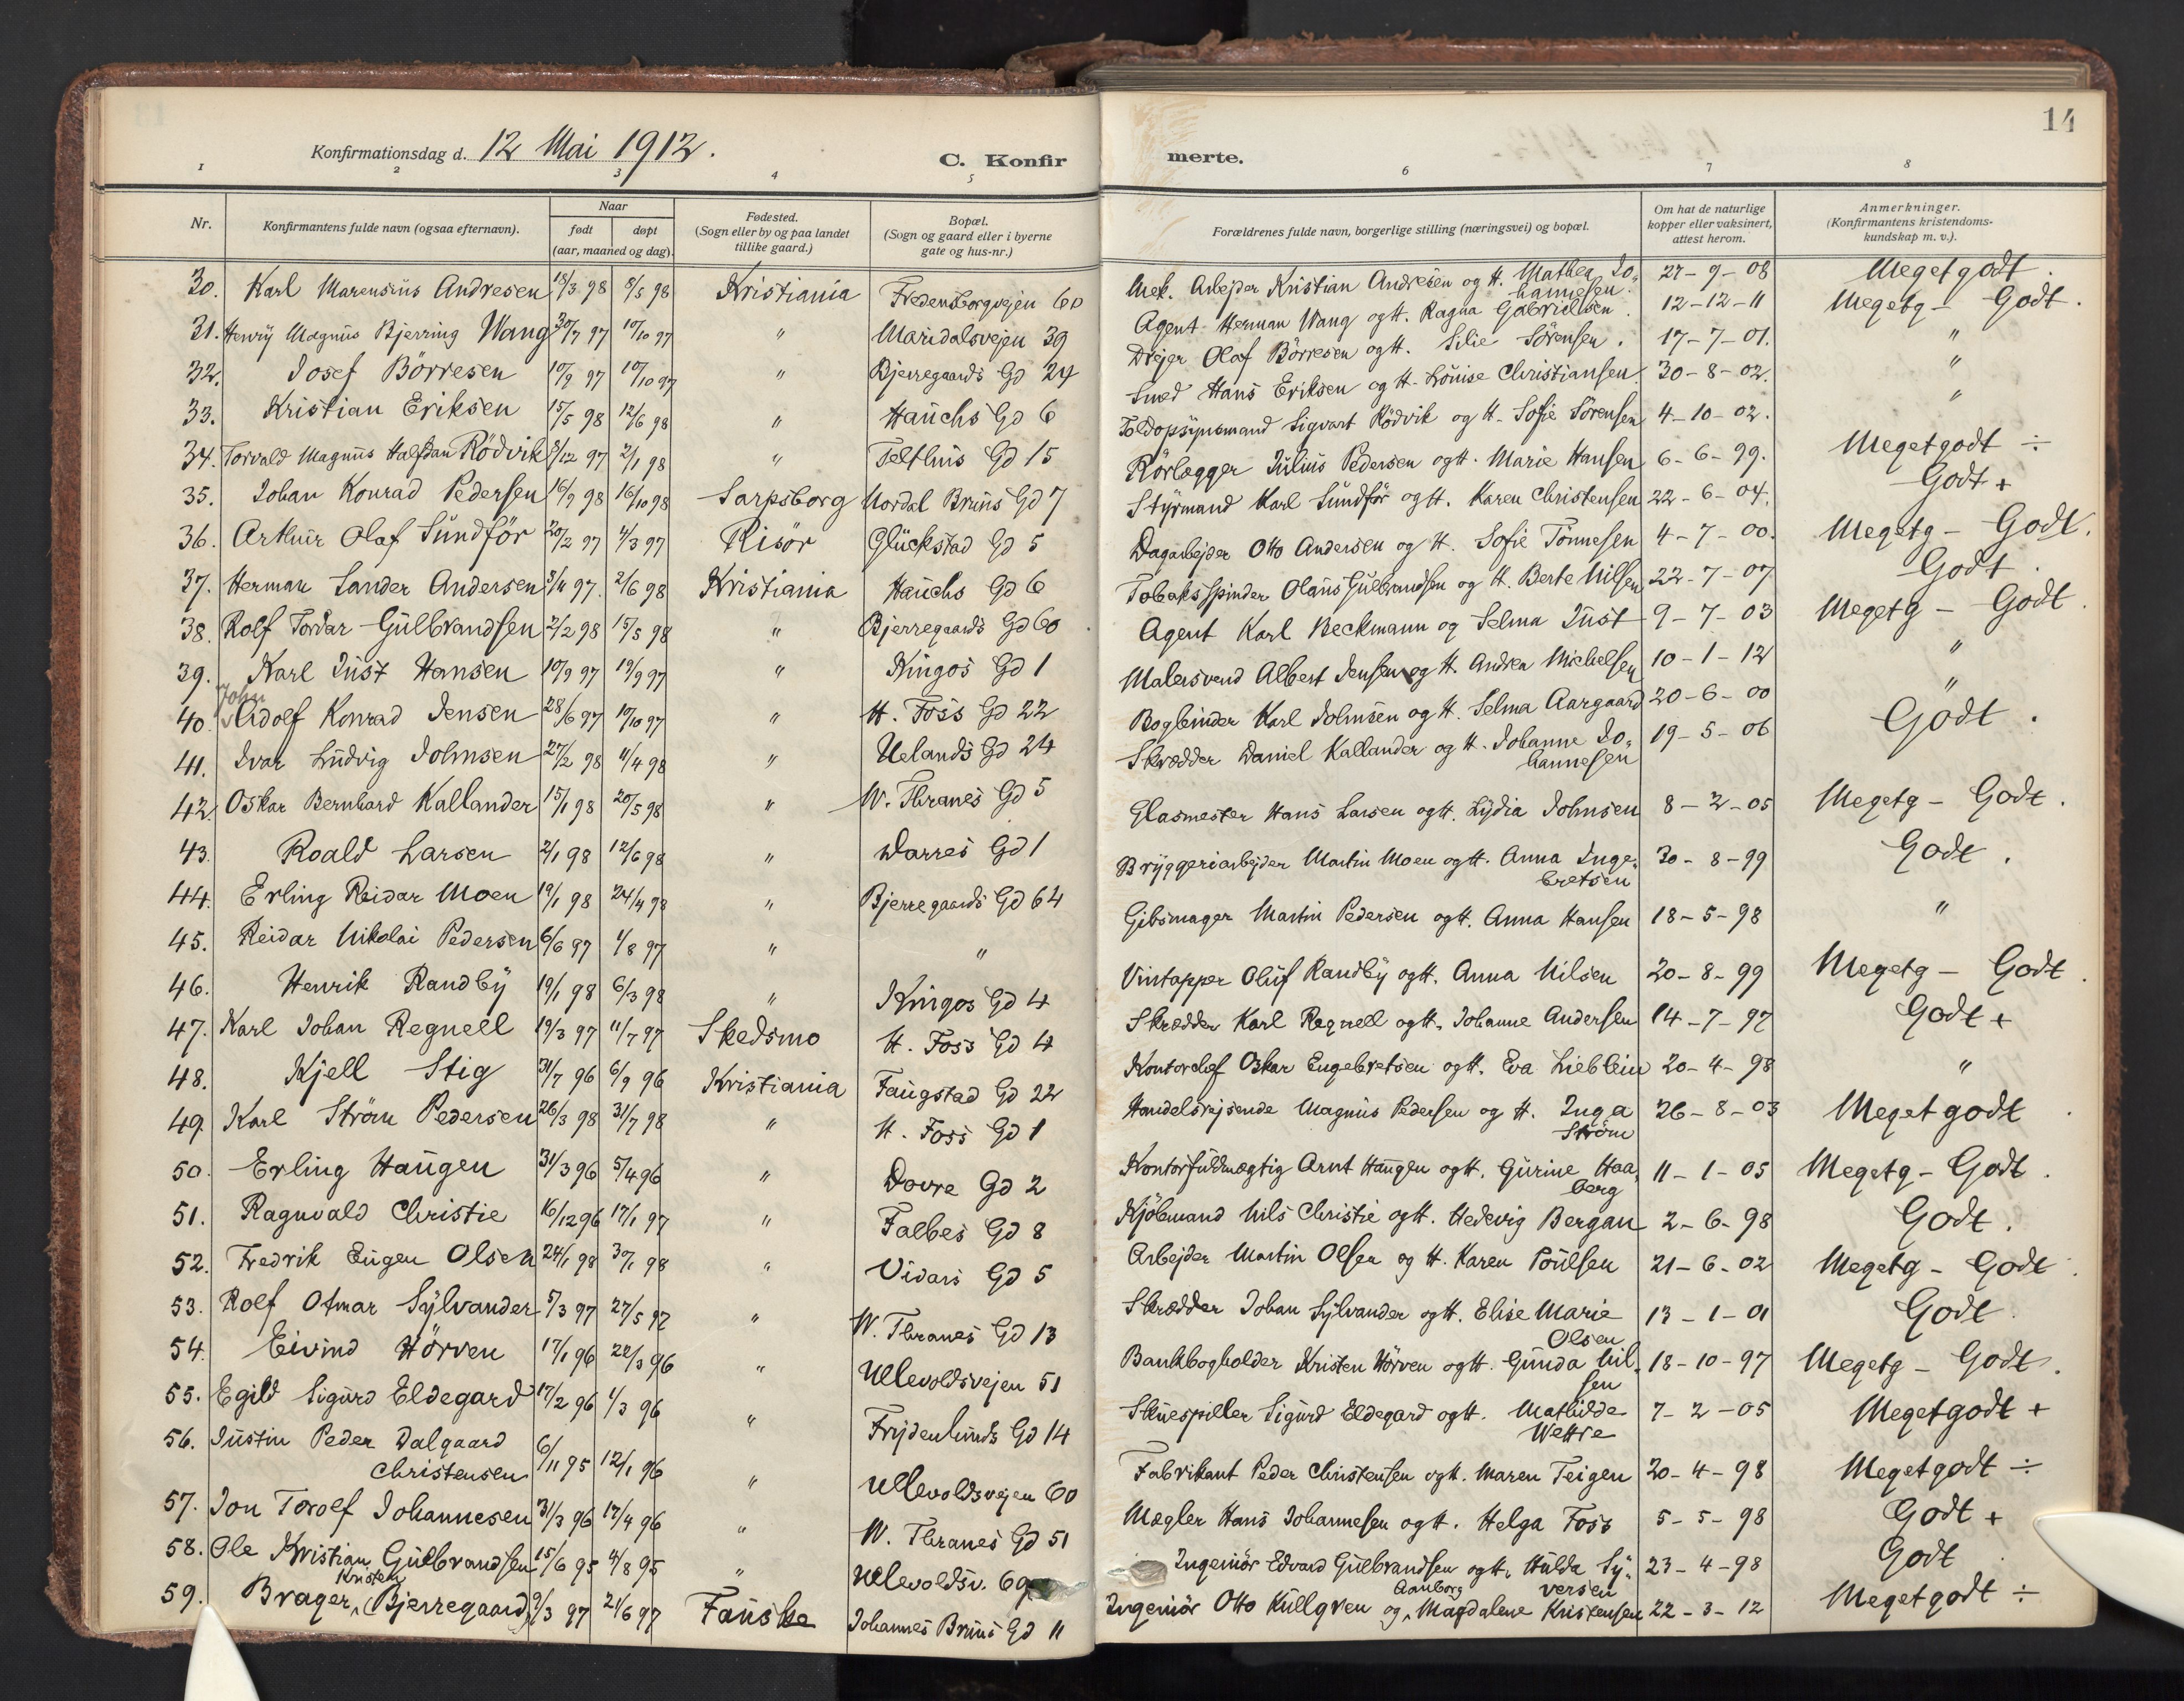 14
Konfirmationsdag d. 12 Mai 1912.
C. Konfirmerte.
1 2 3 4 5 6 7 8
Nr. | Konfirmantens fulde navn (ogsaa efternavn). | Naar født døpt (aar, maaned og dag). | Fødested. (Sogn eller by og paa landet tillike gaard.) | Bopæl. (Sogn og gaard eller i byerne gate og hus-nr.) | Forældrenes fulde navn, borgerlige stilling (næringsvei) og bopæl. | Om hat de naturlige kopper eller vaksinert, attest herom. | Anmerkninger. (Konfirmantens kristendomskundskap m. v.).
30. Karl Marensius Andresen 18/3 98 8/5 98 Kristiania Fredensborgvejen 60 Mek. Arbejder Kristian Andresen og H. Mathea Johannesen. 27-9-08 Megetgodt.
31. Henrÿ Magnus Bjerring Wang 30/7 97 10/10 97 " Maridalsvejen 39 Agent Herman Wang og H. Ragna Gabrielsen. 12-12-11 Megetg - Godt.
32. Josef Börresen 10/9 97 10/10 97 " Bjerregaards Gd 24 Drejer Olaf Börresen og H. Silie Sörensen. 17-7-01. "
33. Kristian Eriksen 15/5 98 12/6 98 " Hauchs Gd 6 Smed Hans Eriksen og H. Louise Christiansen. 30-8-02. "
34. Torvald Magnus Halfdan Rödvik 8/12 97 2/1 98 " Telthus Gd 15 Toldopsÿnsmand Sigvart Rödvik og H. Sofie Sörensen 4-10-02. "
35. Johan Konrad Pedersen 16/9 98 16/10 98 Sarpsborg Nordal Bruns Gd 7 Rörlægger Julius Pedersen og H. Marie Hansen 6-6-99. Megetgodt ÷
36. Arthur Olaf Sundför 20/2 97 4/3 97 Risör Glückstad Gd 5 Stÿrmand Karl Sundför og H. Karen Christensen 22-6-04. Godt +
37. Herman Sander Andersen 3/11 97. 2/6 98 Kristiania Hauchs Gd 6 Dagarbejder Otto Andersen og H. Sofie Tönnesen 4-7-00. Megetg - Godt.
38. Rolf Tordar Gulbrandsen 2/2 98 15/5 98 " Bjerregaards Gd 60 Tobaksspinder Olaus Gulbrandsen og H. Berte Nilsen 22-7-07 Godt.
39. Karl Just Hansen 10/9 97 19/9 97 " Kingos Gd 1 Agent Karl Beckmann og Selma Just 9-7-03 Megetg - Godt.
40. John Adolf Konrad Jensen 28/6 97 10/10 97 " H. Foss Gd 22 Malersvend Albert Jensen og H. Andrea Michelsen 10-1-12 "
41. Ivar Ludvig Johnsen 27/2 98 11/4 98 " Uelands Gd 24 Bogbinder Karl Johnsen og H. Selma Aargaard 20-6-00 "
42. Oskar Bernhard Kallander 15/1 98 20/5 98 " W. Thranes Gd 5 Skrædder Daniel Kallander og H. Johanne Johannesen 19-5-06 Godt.
43. Roald Larsen 2/1 98 12/6 98 " Darres Gd 1 Glasmester Hans Larsen og H. Lÿdia Johnsen 8-2-05 Megetg - Godt.
44. Erling Reidar Moen 19/1 98 24/4 98 " Bjerregaards Gd 64 Brÿggeriarbejder Martin Moen og H. Anna Ingebretsen 30-8-99 Godt.
45. Reidar Nikolai Pedersen 6/6 97 1/8 97 " " Gibsmager Martin Pedersen og H. Anna Hansen 18-5-98 "
46. Henrik Randbÿ 19/1 98 6/3 98 " Kingos Gd 4 Vintapper Oluf Randbÿ og H. Anna Nilsen 20-8-99 Megetg - Godt.
47. Karl Johan Regnell 19/3 97 11/7 97 Skedsmo H. Foss Gd 4 Skrædder Karl Regnell og H. Johanne Andersen 14-7-97 Godt +
48. Kjell Stig 31/7 96 6/9 96 Kristiania Faugstad Gd 22 Kontorchef Oskar Engebretsen og H. Eva Lieblein 20-4-98 "
49. Karl Ström Pedersen 26/3 98 31/7 98 " H. Foss Gd 1 Handelsrejsende Magnus Pedersen og H. Inga Ström 26-8-03 Megetgodt.
50. Erling Haugen 31/3 96 5/4 96 " Dovre Gd 2 Kontorfuldmægtig Arnt Haugen og H. Gurine Haaberg 11-1-05 Megetg - Godt.
51. Ragnvald Christie 16/12 96 17/1 97 " Falbes Gd 8 Kjöbmand Nils Christie og H. Hedevig Bergan 2-6-98 Godt.
52. Fredrik Eugen Olsen 24/1 98 30/1 98 " Vidars Gd 5 Arbejder Martin Olsen og H. Karen Poulsen 21-6-02 Megetg - Godt.
53. Rolf Otmar Sÿlvander 5/3 97 27/5 97 " W. Thranes Gd 13 Skrædder Johan Sÿlvander og H. Elise Marie Olsen 13-1-01 Godt.
54. Eivind Hörven 17/1 96 22/3 96 " Ullevoldsvejen 51 Bankbogholder Kristen Hörven og H. Gunda Nilsen 18-10-97 Megetg - Godt.
55. Egild Sigurd Eldegard 17/2 96 1/3 96 " Frydenlunds Gd 14 Skuespiller Sigurd Eldegard og H. Mathilde Wettre 7-2-05 Megetgodt +
56. Justin Peder Dalgaard Christensen 6/11 95 12/1 96 " Ullevoldsvejen 60 Fabrikant Peder Christensen og H. Maren Teigen 20-4-98 Megetgodt ÷
57. Jon Torolf Johannesen 31/3 96 17/4 96 " W. Thranes Gd 51 Mægler Hans Johannesen og H. Helga Foss 5-5-98 Godt +
58. Ole Kristian Gulbrandsen 15/6 95 4/8 95 " Ullevoldsv. 69 Ingeniör Edvard Gulbrandsen og H. Hulda Sÿversen 23-4-98 Godt.
59. Brager Kristen (Bjerregaard) 9/3 97 21/6 97 Fauske Johannes Bruns Gd 11 Ingeniör Otto Kullgren og Aanborg Magdalene Kristensen 22-3-12 Megetgodt ÷